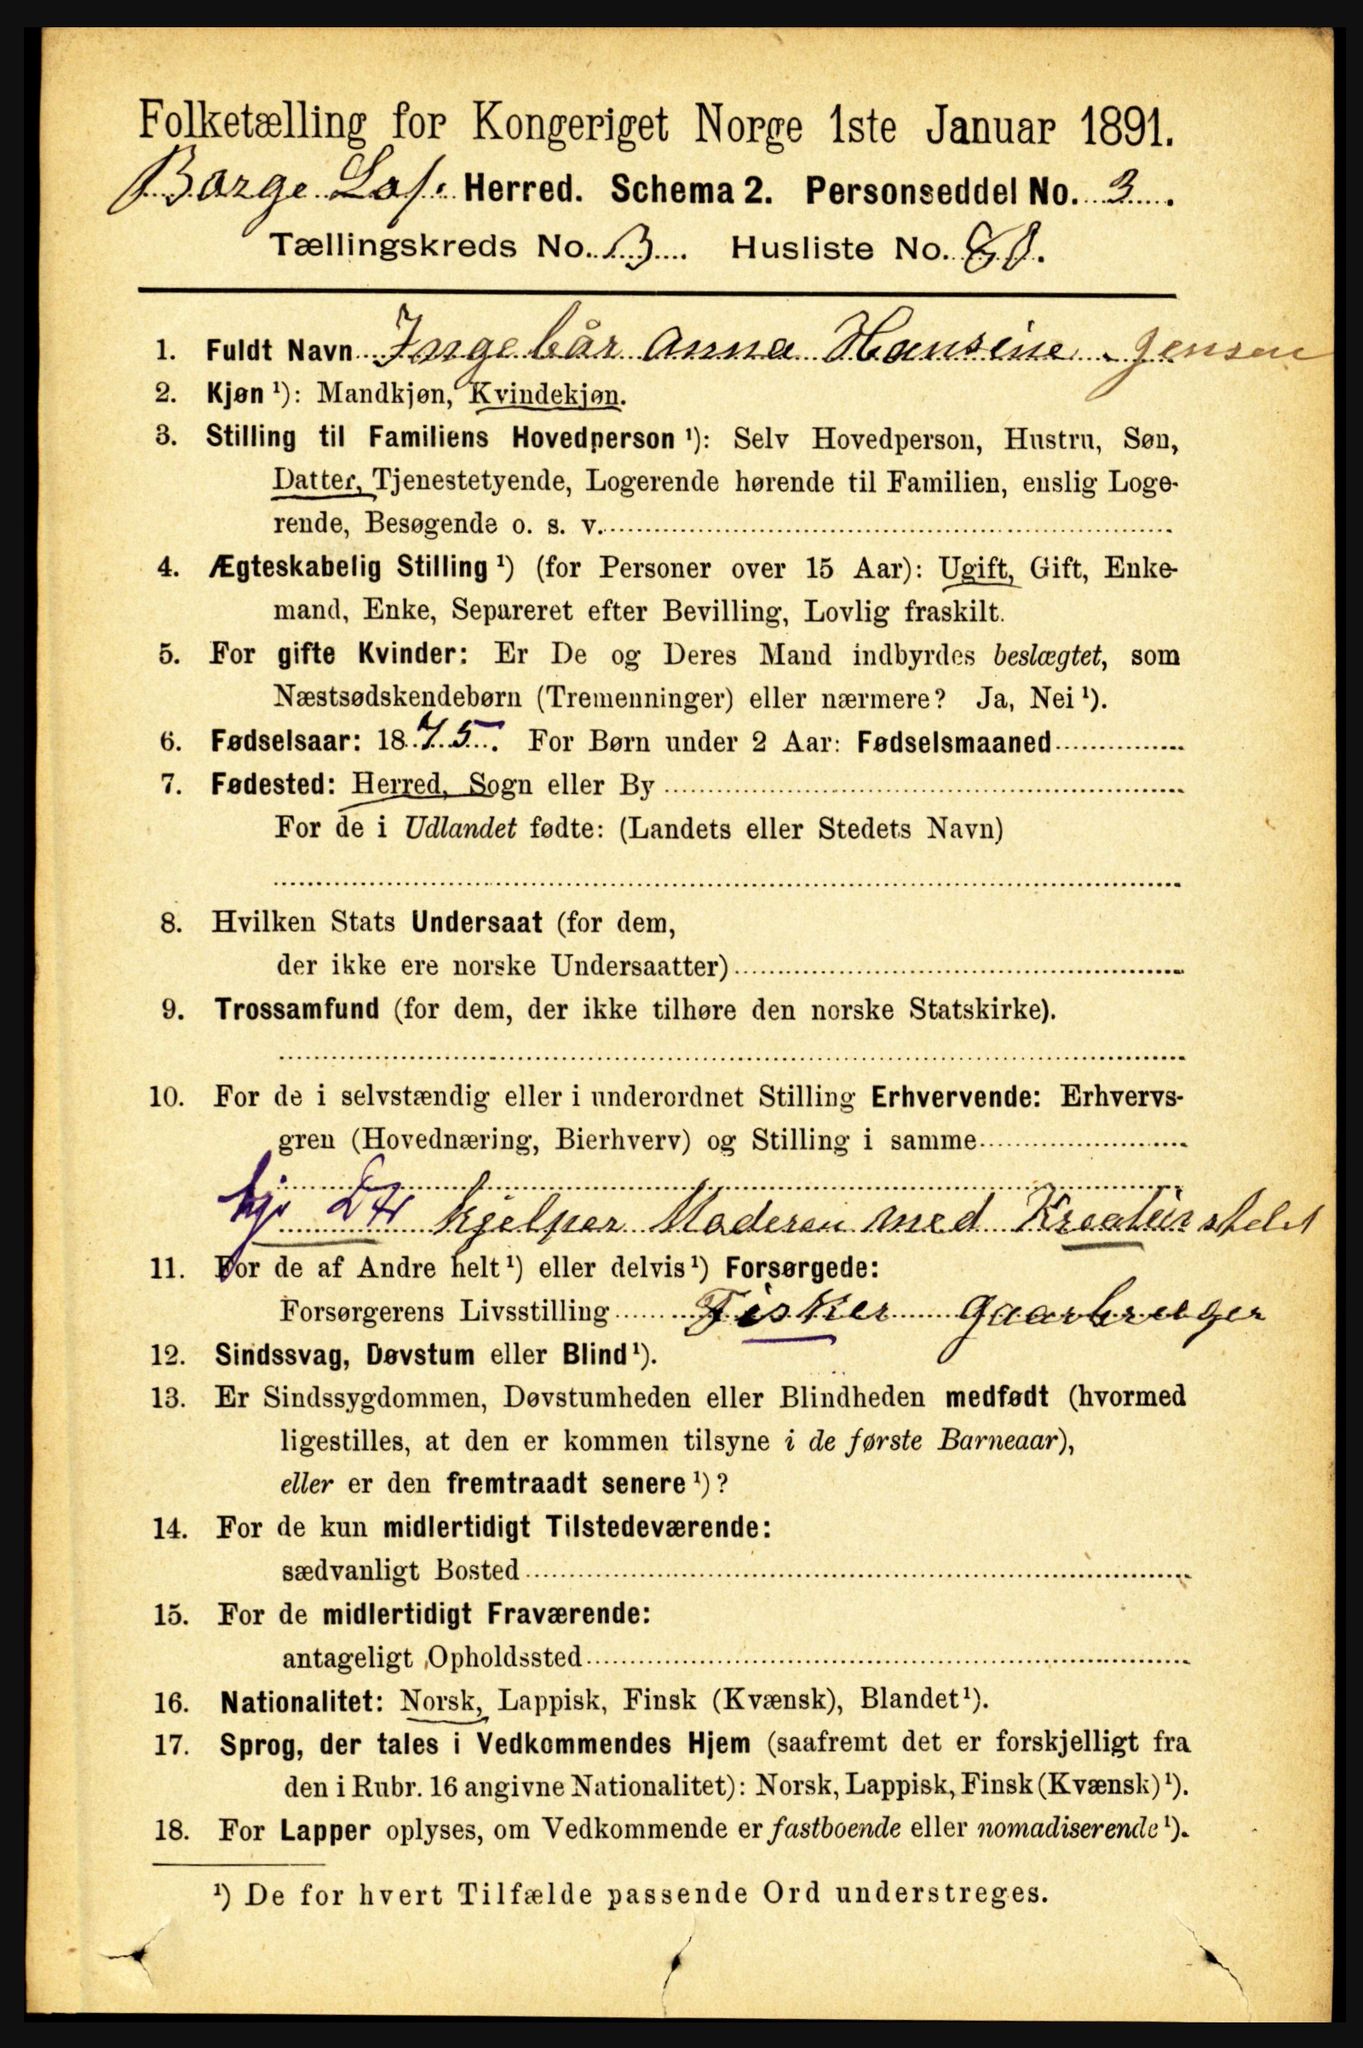 Folketælling for Kongeriget Norge 1ste Januar 1891.
Borge Lof. Herred. Schema 2. Personseddel No. 3.
Tællingskreds No. 3. Husliste No. 80.
1. Fuldt Navn Ingebår Anna Hansine Jensen
2. Kjøn ¹): Mandkjøn, Kvindekjøn.
3. Stilling til Familiens Hovedperson ¹): Selv Hovedperson, Hustru, Søn,
Datter, Tjenestetyende, Logerende hørende til Familien, enslig Loge-
rende, Besøgende o. s. v.
4. Ægteskabelig Stilling ¹) (for Personer over 15 Aar): Ugift, Gift, Enke-
mand, Enke, Separeret efter Bevilling, Lovlig fraskilt.
5. For gifte Kvinder: Er De og Deres Mand indbyrdes beslægtet, som
Næstsødskendebørn (Tremenninger) eller nærmere? Ja, Nei ¹).
6. Fødselsaar: 1875. For Børn under 2 Aar: Fødselsmaaned
7. Fødested: Herred, Sogn eller By
For de i Udlandet fødte: (Landets eller Stedets Navn)
8. Hvilken Stats Undersaat (for dem,
der ikke ere norske Undersaatter)
9. Trossamfund (for dem, der ikke tilhøre den norske Statskirke).
10. For de i selvstændig eller i underordnet Stilling Erhvervende: Erhvervs-
gren (Hovednæring, Bierhverv) og Stilling i samme
hj. hjelper Moderen med Kreaturstelet
11. For de af Andre helt ¹) eller delvis ¹) Forsørgede:
Forsørgerens Livsstilling Fisker Gaarbruger
12. Sindssvag, Døvstum eller Blind ¹).
13. Er Sindssygdommen, Døvstumheden eller Blindheden medfødt (hvormed
ligestilles, at den er kommen tilsyne i de første Barneaar),
eller er den fremtraadt senere ¹)?
14. For de kun midlertidigt Tilstedeværende:
sædvanligt Bosted
15. For de midlertidigt Fraværende:
antageligt Opholdssted
16. Nationalitet: Norsk, Lappisk, Finsk (Kvænsk), Blandet ¹).
17. Sprog, der tales i Vedkommendes Hjem (saafremt det er forskjelligt fra
den i Rubr. 16 angivne Nationalitet): Norsk, Lappisk, Finsk (Kvænsk) ¹).
18. For Lapper oplyses, om Vedkommende er fastboende eller nomadiserende ¹).
¹) De for hvert Tilfælde passende Ord understreges.